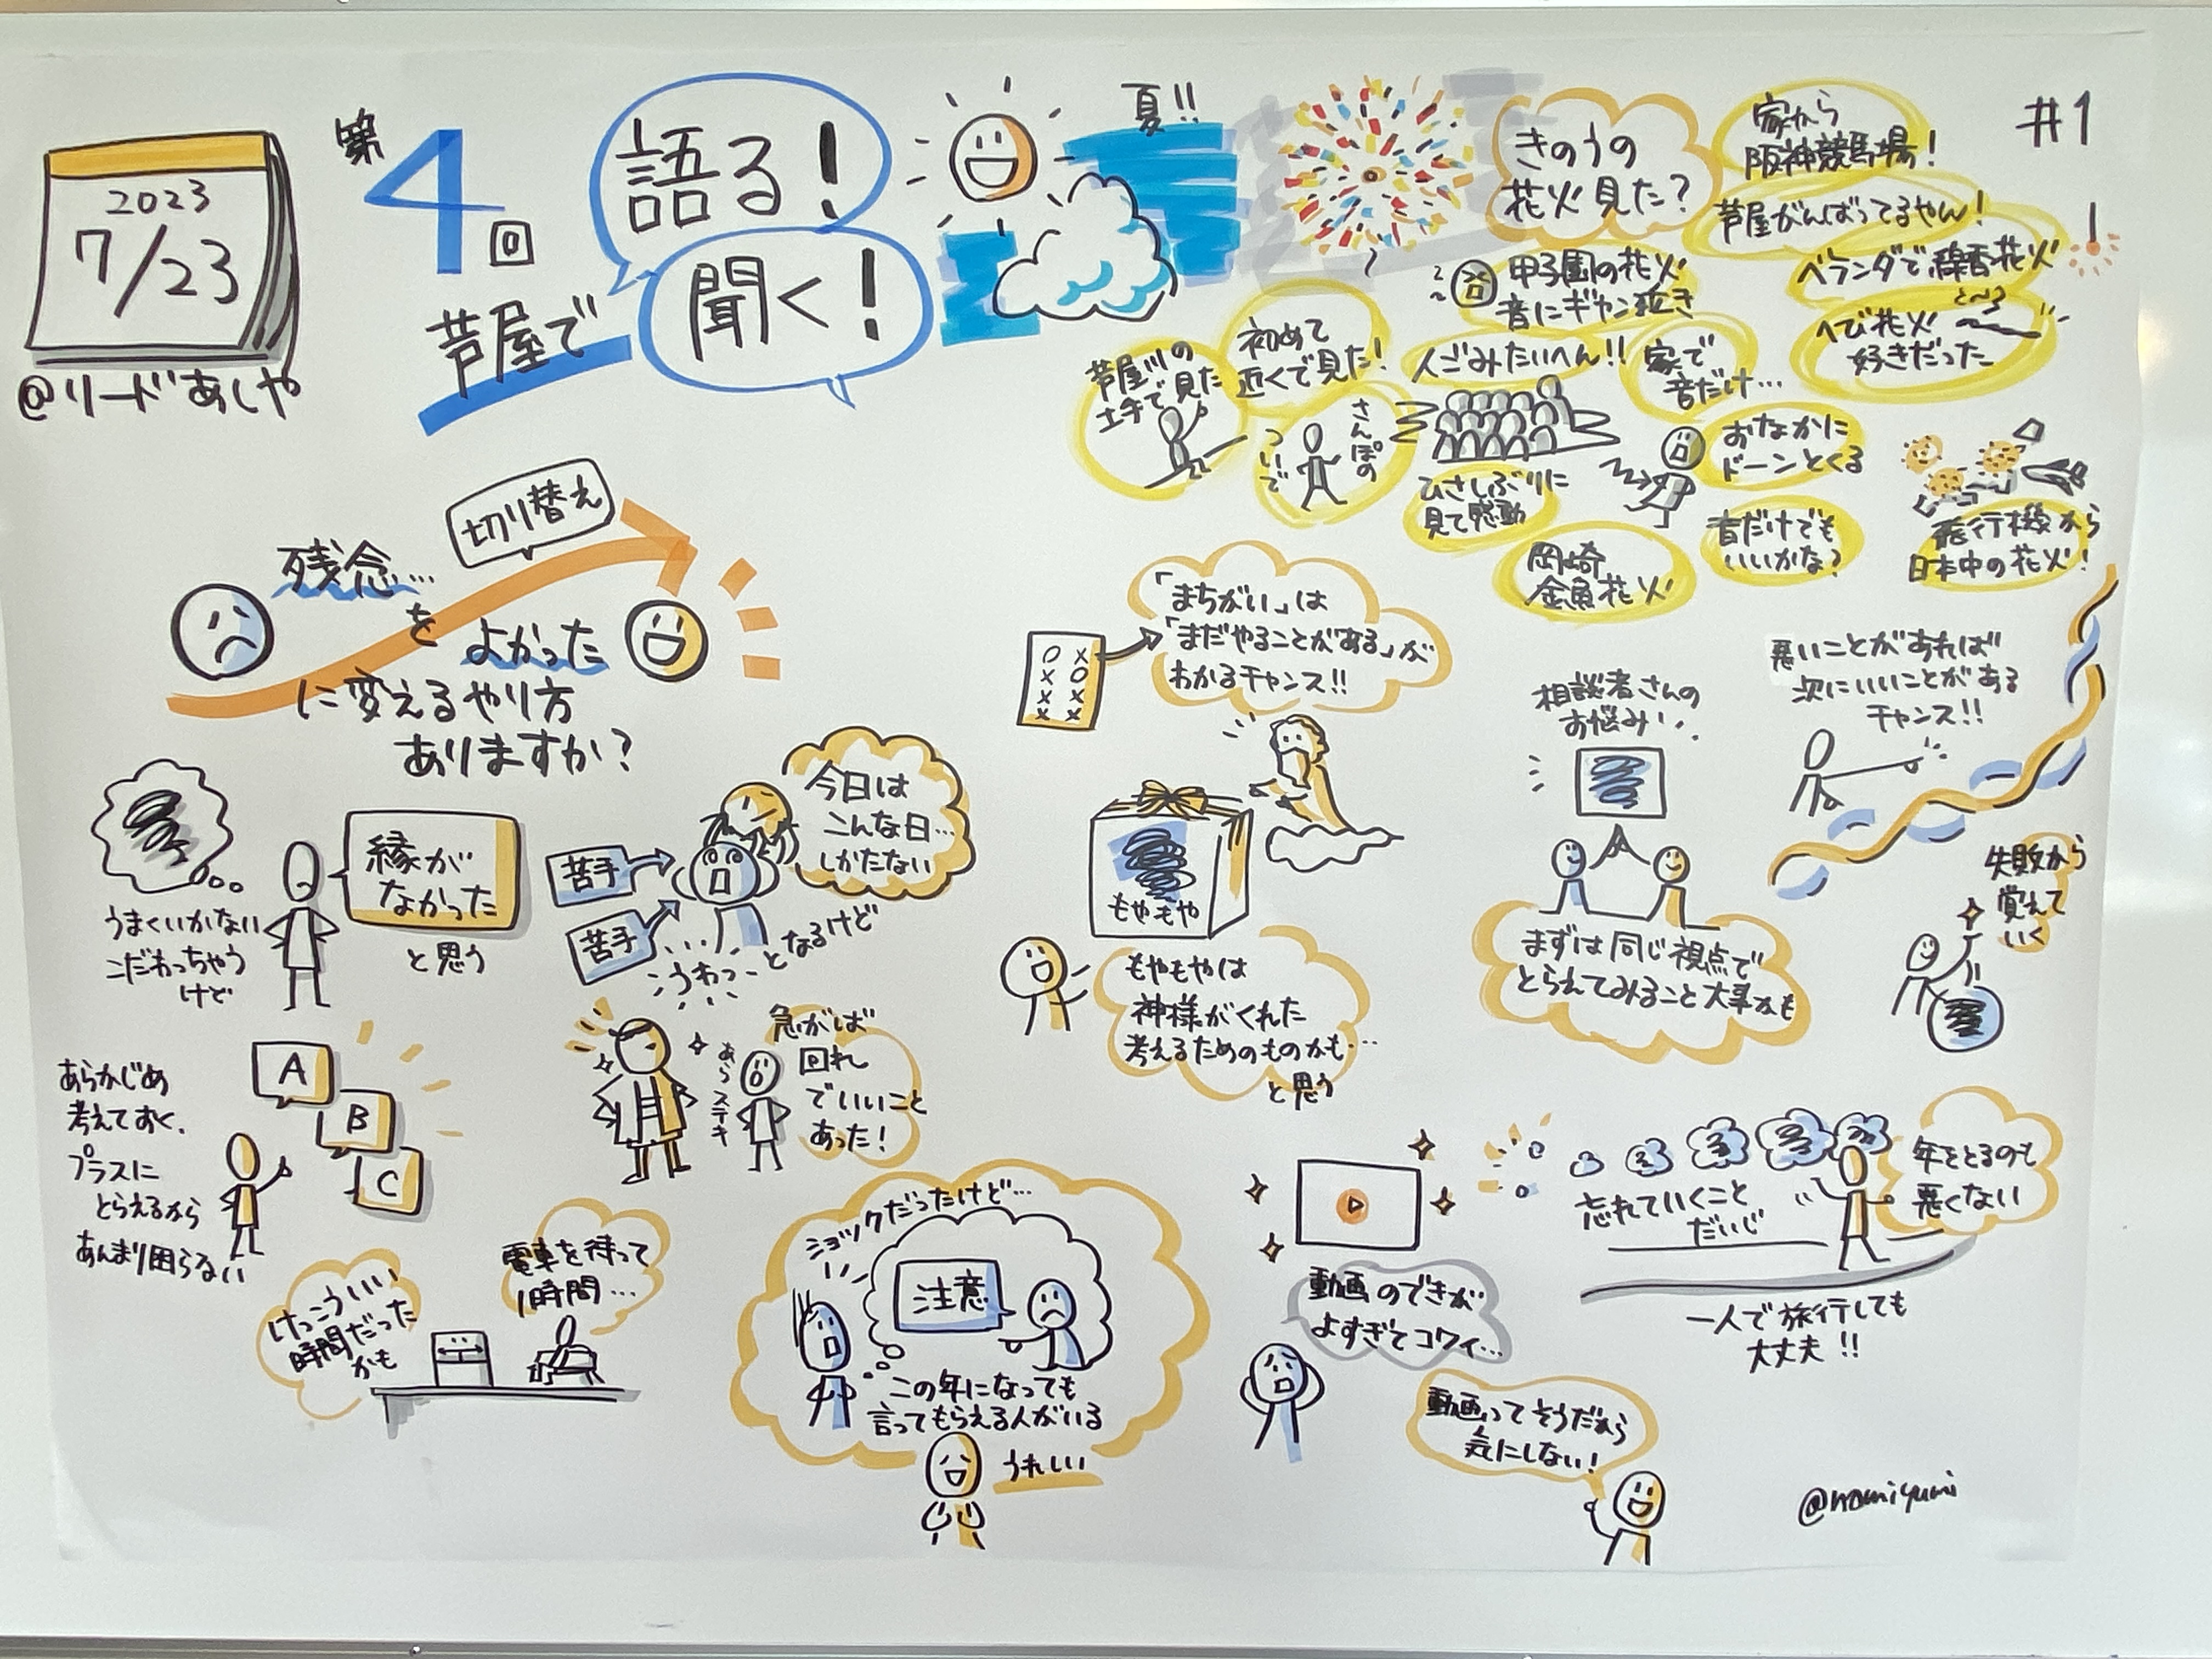 2023
7/23
@リードあしや
第4回
芦屋で
語る!
聞く!
夏!!
#1
きのうの
花火見た?
家から
阪神競馬場!
芦屋がんばってるやん!
ベランダで線香花火
へび花火
好きだった
甲子園の花火
音にギャン泣き
初めて
近くで見た!
芦屋川の
土手で見た
さんぽの
ついで
人ごみたいへん!!
家で
音だけ…
おなかに
ドーンとくる
ひさしぶりに
見て感動
音だけでも
いいかな?
岡崎
金魚花火
飛行機から
日本中の花火!
切り替え
残念…
を
よかった
に変えるやり方
ありますか?
うまくいかない
こだわっちゃう
けど
縁が
なかった
と思う
苦手
苦手
うわっ
となるけど
今日は
こんな日…
しかたない
あらかじめ
考えておく、
プラスに
とらえるから
あんまり困らない
A
B
C
あらステキ
急がば
回れ
でいいこと
あった!
けっこういい
時間だった
かも
電車を待って
1時間…
ショックだったけど…
注意
この年になっても
言ってもらえる人がいる
うれしい
「まちがい」は
「まだやることがある」が
わかるチャンス!!
もやもや
もやもやは
神様がくれた
考えるためのものかも…
と思う
相談者さんの
お悩み
まずは同じ視点で
とらえてみること大事かも
悪いことがあれば
次にいいことがある
チャンス!!
失敗から
覚えて
いく
動画のできが
よすぎてコワイ…
動画ってそうだから
気にしない!
忘れていくこと
だいじ
年をとるのも
悪くない
一人で旅行しても
大丈夫!!
@nomiyumi